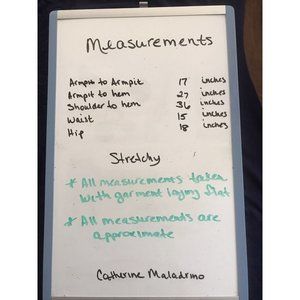 Measurements
Armpit to Armpit 17 inches
Armpit to hem 27 inches
Shoulder to hem 36 inches
Waist 15 inches
Hip 18 inches
Stretchy
* All measurements taken
with garment laying flat
* All measurements are
approximate
Catherine Maladrino